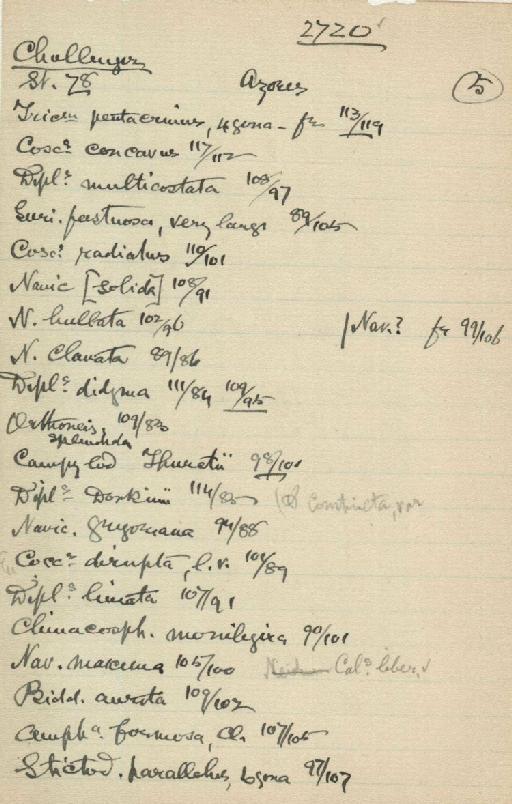 2720
Challenger
St. 78 Azores (5)
Tricm pentacrinus, 4gona - fr 113/119
Coscs concavus 117/112
Dipls multicostata 108/97
Suri. fastuosa, very large 89/105
Coscs radiatus 110/101
Navic [solida] 108/91
N. bullata 102/96 / Nav.? fr 99/106
N. Clavata 89/86
Dipls didyma 111/84 109/95
Orthoneis, 109/830
splendida
Campylod Thuretii 98/101
Dipls Donkinii 114/85 constricta, var
Navic. gregoriana 94/88
Cocc: dirupta, l.v. 101/89
Dipl.s lineata 107/91
Climacosph. moniligera 90/101
Nav. maxima 105/100 Cals liber, v
Bidd. aurita 109/102
Ampha formosa, Cl. 107/105
Stictod. parallelus, 4gona 97/107